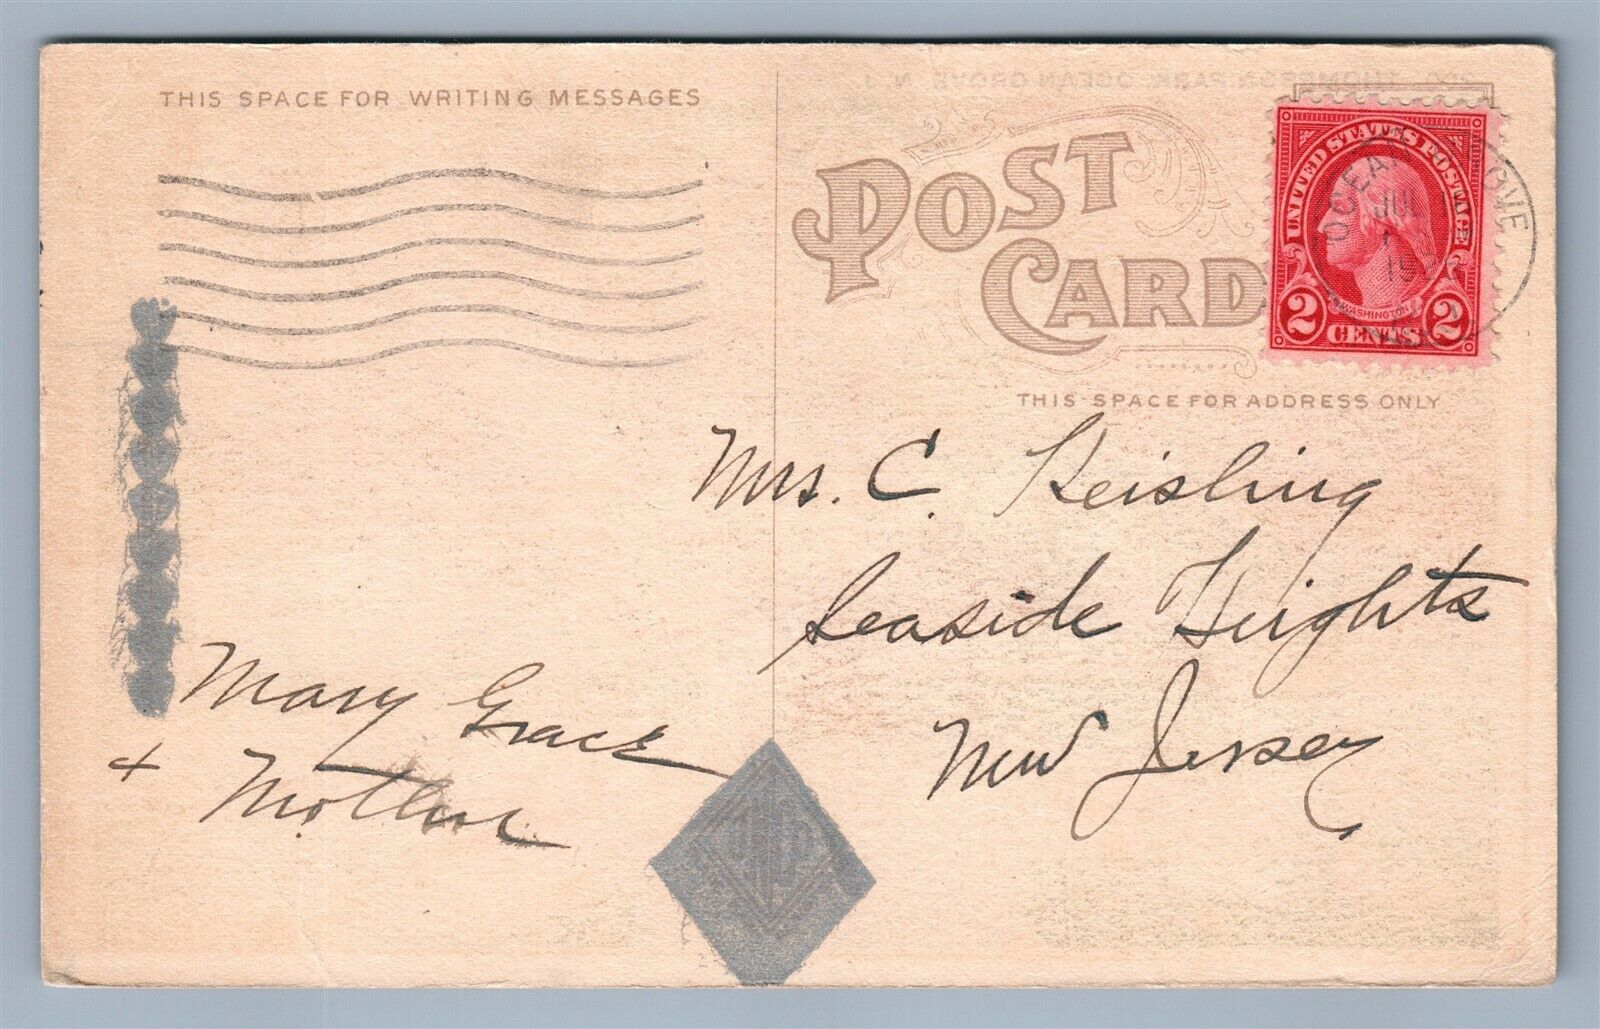 THIS SPACE FOR WRITING MESSAGES
POST
CARD
UNITED STATES POSTAGE
WASHINGTON
2 CENTS 2
OCEAN
JUL
THIS SPACE FOR ADDRESS ONLY
Mrs. C. Keisling
Seaside Heights
New Jersey
Mary Grace
+ Mother